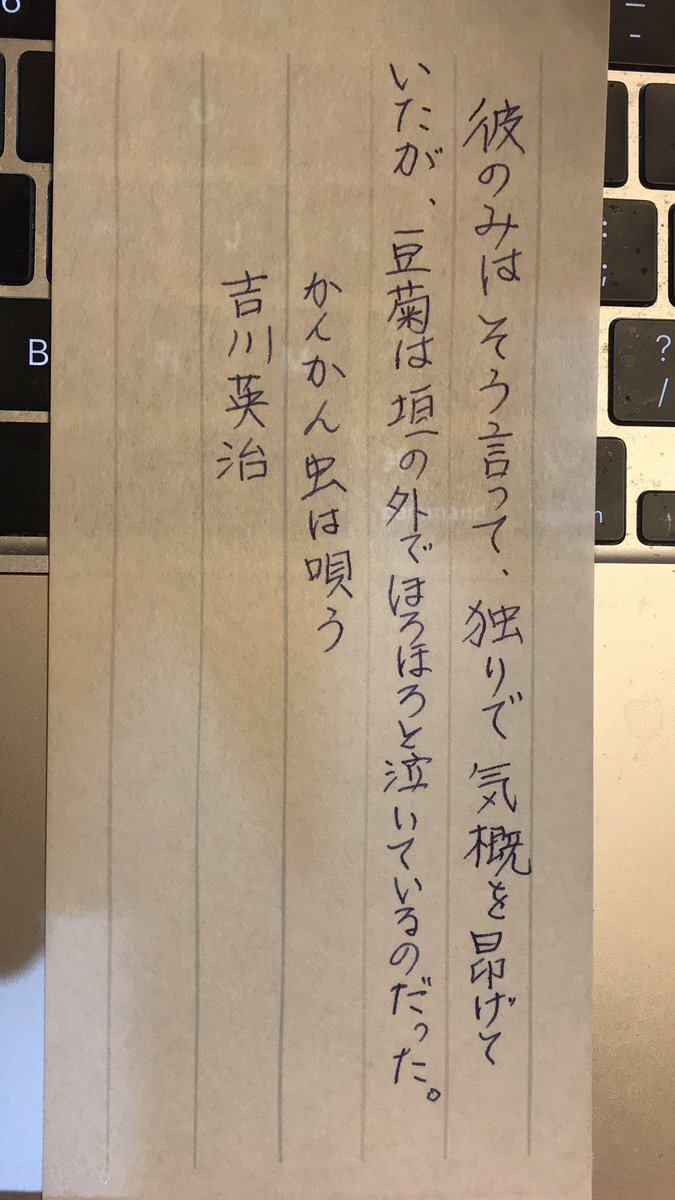 彼のみはそう言って、独りで気概を昂げて
いたが、豆菊は垣の外でほろほろと泣いているのだった。
かんかん虫は唄う
吉川英治
6
B
:
;
?
/